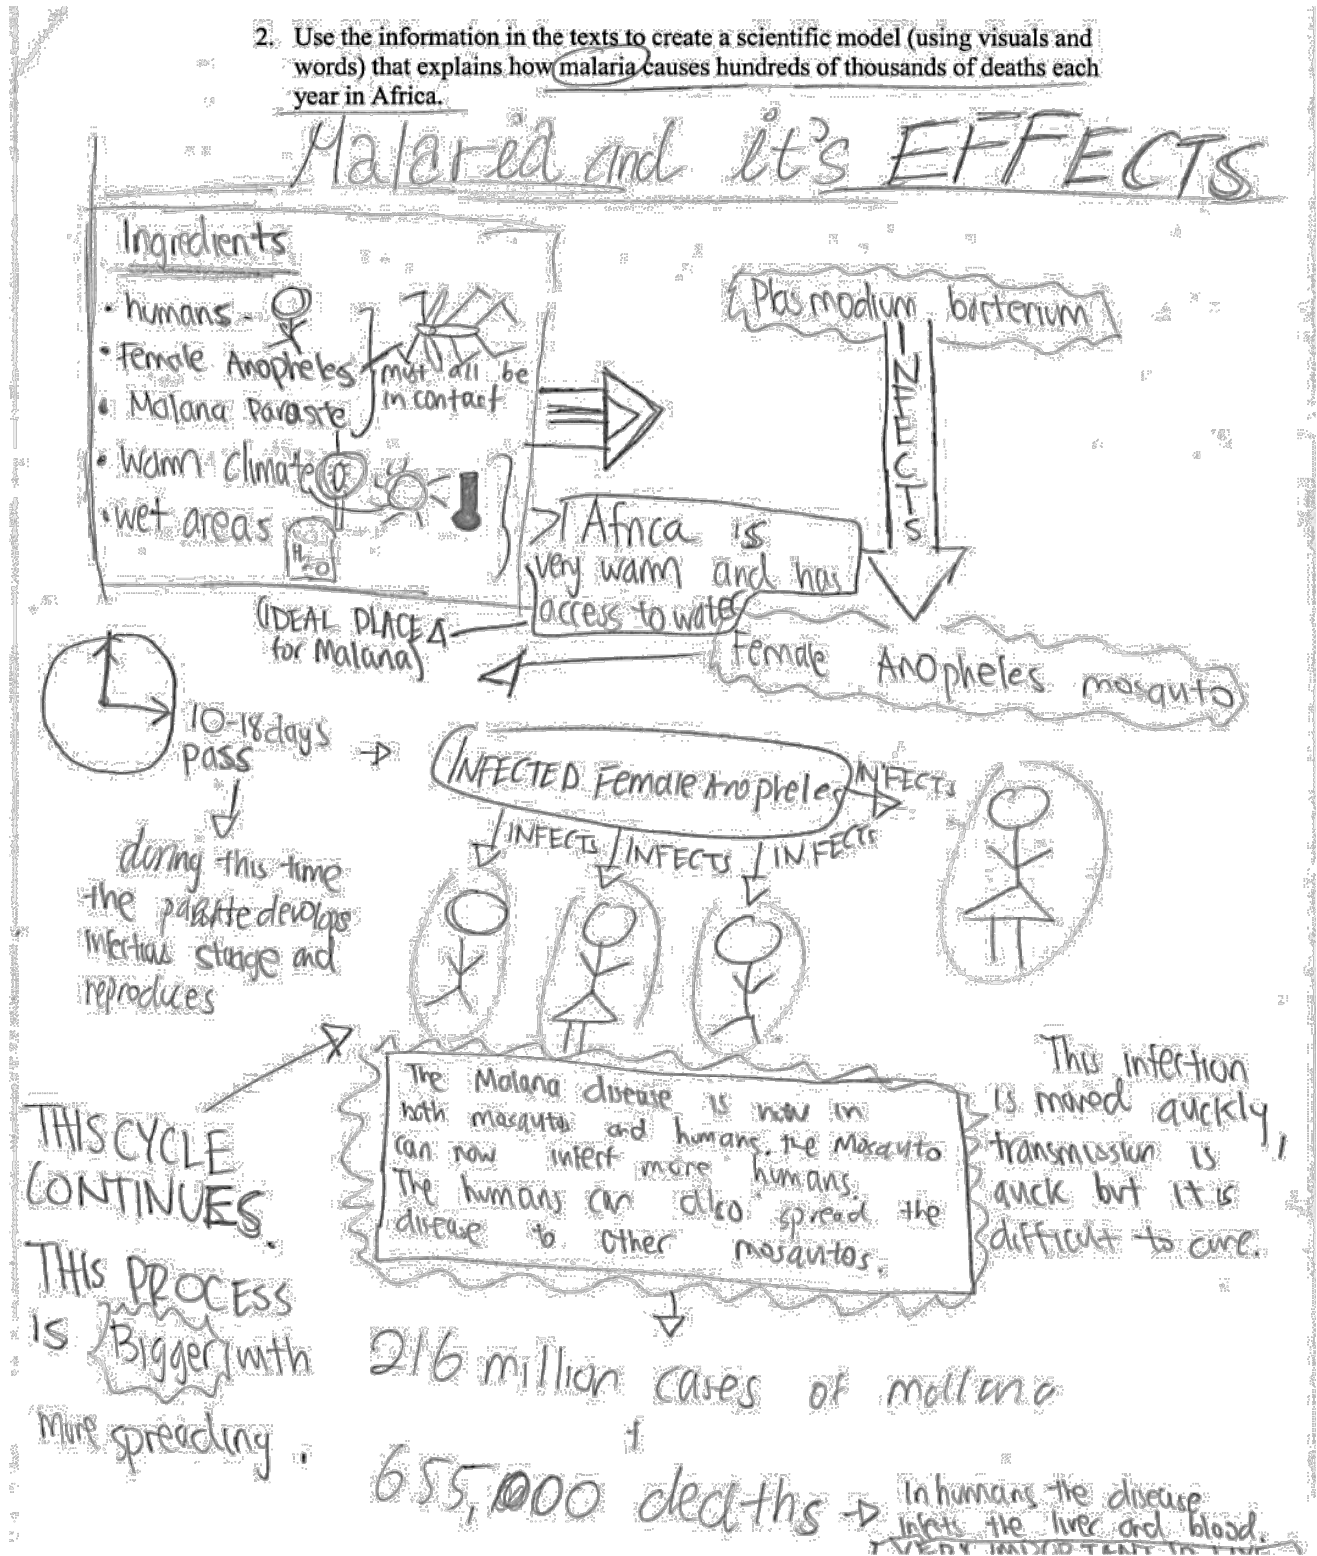 2. Use the information in the texts to create a scientific model (using visuals and
words) that explains how malaria causes hundreds of thousands of deaths each
year in Africa.
Malaria and it's EFFECTS
Ingredients
• humans -
• Female Anopheles
• Malaria Parasite
must all be
in contact
• Warm Climate
• wet areas
H2O
Africa is
very warm and has
access to water
(IDEAL PLACE
for Malaria)
Plasmodium bacterium
INFECTS
Female Anopheles mosquito
10-18 days
pass
during this time
the parasite devolops
infectious stage and
reproduces
INFECTED Female Anopheles
INFECTS
INFECTS
INFECTS
INFECTS
The Malaria disease is now in
both mosquitos and humans. The Mosquito
can now infect more humans.
The humans can also spread the
disease to other mosquitos.
This infection
is moved quickly,
transmission is
quick but it is
difficult to cure.
THIS CYCLE
CONTINUES.
THIS PROCESS
is Bigger with
more spreading.
216 million cases of malaria
+
655,000 deaths
In humans the disease
infects the liver and blood.
VERY IMPORTANT TO LIVE